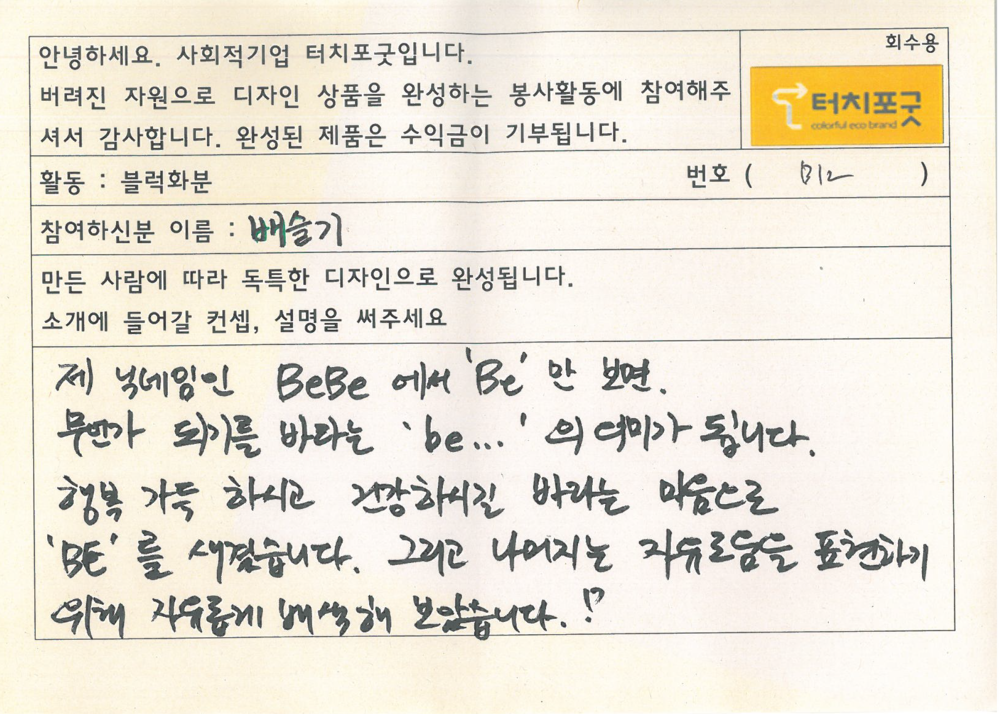 회수용
안녕하세요. 사회적기업 터치포굿입니다.
버려진 자원으로 디자인 상품을 완성하는 봉사활동에 참여해주
셔서 감사합니다. 완성된 제품은 수익금이 기부됩니다.
터치포굿
colorful eco brand
활동 : 블럭화분
번호 ( B12 )
참여하신분 이름 : 배슬기
만든 사람에 따라 독특한 디자인으로 완성됩니다.
소개에 들어갈 컨셉, 설명을 써주세요
제 닉네임인 BeBe 에서 'Be' 만 보면.
무언가 되기를 바라는 'be...' 의 의미가 됩니다.
행복 가득 하시고 건강하시길 바라는 마음으로
'BE' 를 새겼습니다. 그리고 나머지는 자유로움을 표현하기
위해 자유롭게 배색해 보았습니다.!?